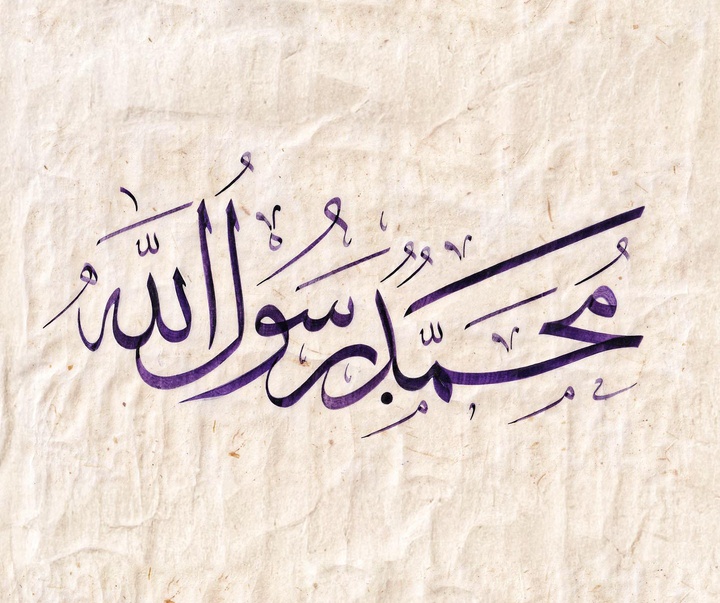 مُحَمَّدٌ رَسُولُ اللّٰهِ